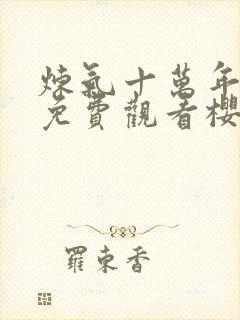 煉氣十萬年
免費觀看櫻
羅東香